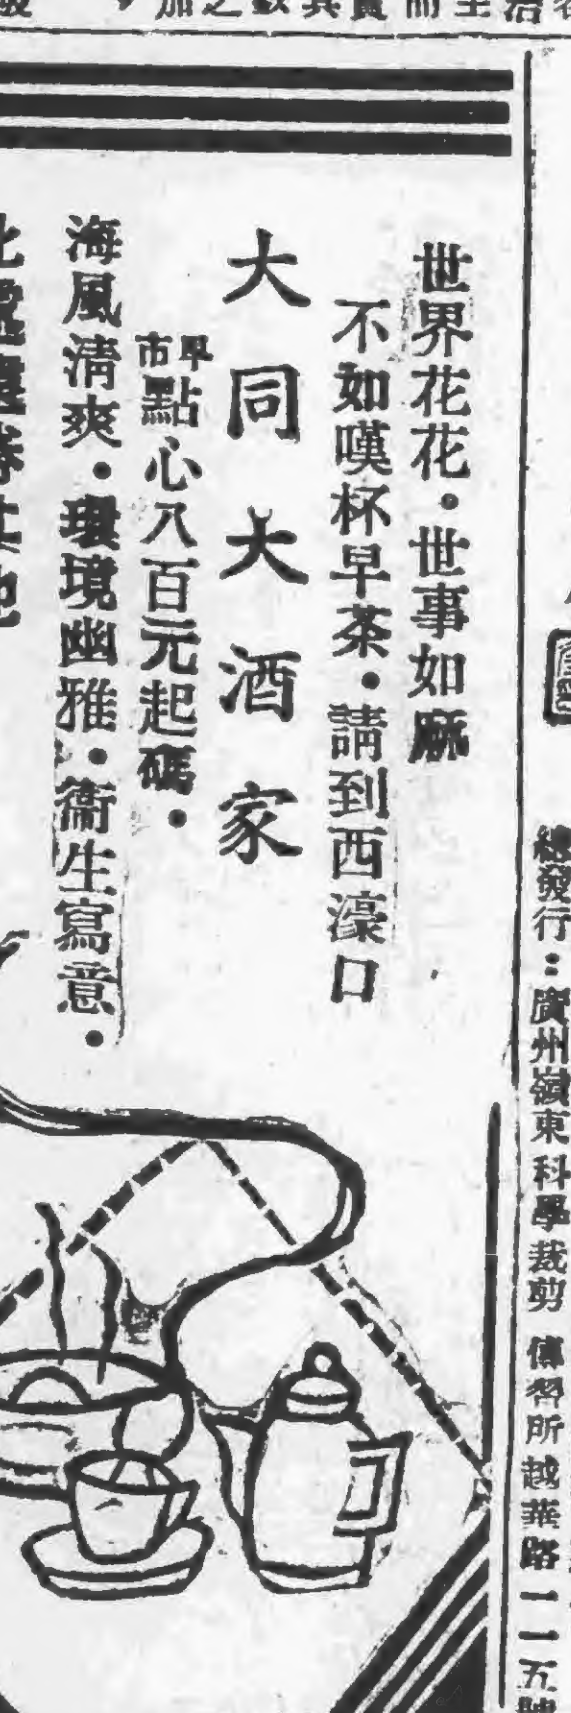 總發行：廣州嶺東科學裁剪傳習所越華路一一五號
世界花花．世事如麻
不如嘆杯早茶．請到西濠口
大同大酒家
早市點心八百元起碼．
海風淸爽．環境幽雅．衞生寫意．